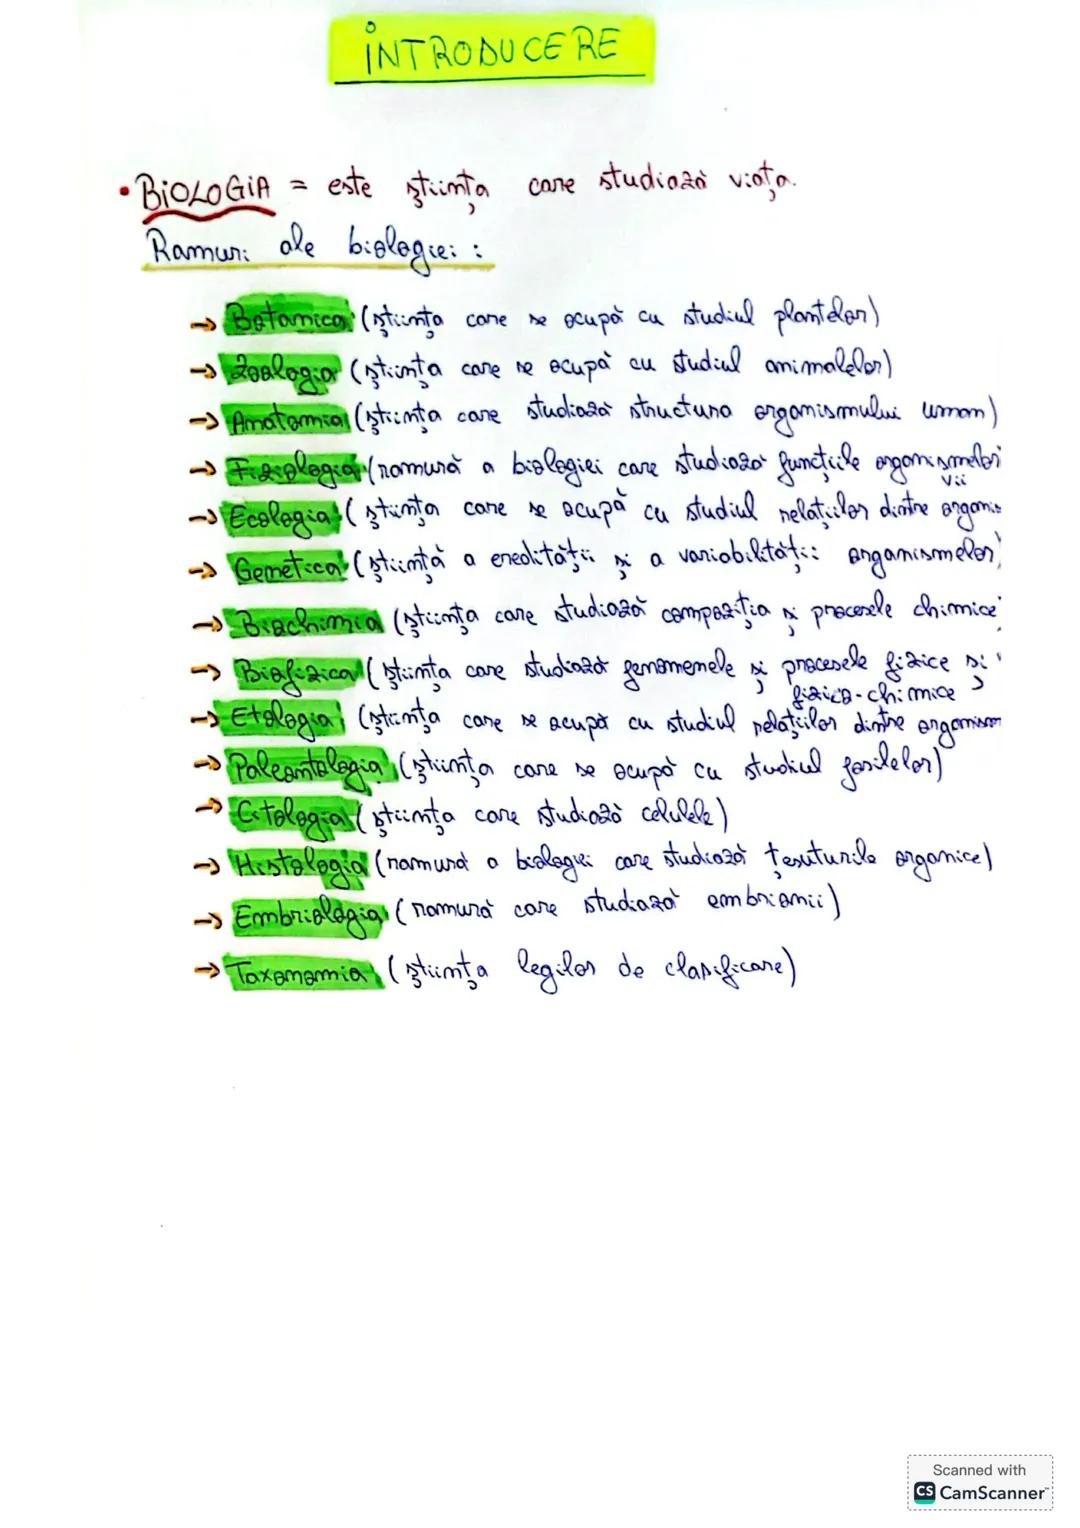 INTRODUCERE
• BIOLOGIA = este știința care studiază viața.
Ramuri ale biologiei :
→ Botanica (știința care se ocupă cu studiul plantelor)
→ Zoologia (știința care se ocupă cu studiul animalelor)
→ Anatomia (știința care studiază structura organismului uman)
→ Fiziologia (ramură a biologiei care studiază funcțiile organismelor
vii
→ Ecologia (știința care se ocupă cu studiul relațiilor dintre organis
→ Genetica (știință a eredității și a variabilității organismelor)
→ Biochimia (știința care studiază compoziția și procesele chimice
→ Biofizica (știința care studiază fenomenele și procesele fizice și
fizico-chimice
→ Etologia (știința care se ocupă cu studiul relațiilor dintre organism
→ Paleontologia (știința care se ocupă cu studiul fosilelor)
→ Citologia (știința care studiază celulele)
→ Histologia (ramură a biologiei care studiază țesuturile organice)
→ Embriologia (ramură care studiază embrionii)
→ Taxonomia (știința legilor de clasificare)
Scanned with
CS CamScanner